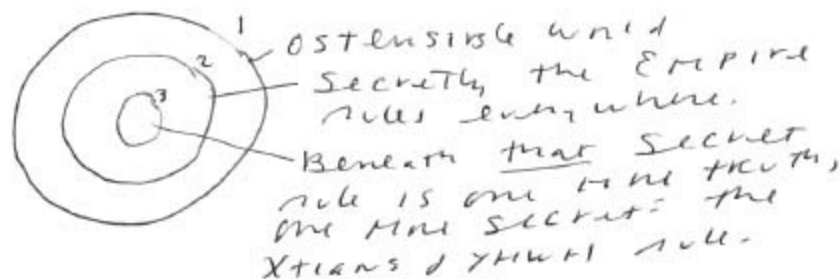 1
Ostensible world
2
Secretly, the Empire
rules everywhere.
3
Beneath that secret
rule is one more truth,
one more secret: the
Xtians & YHWH rule.